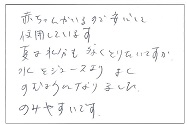 赤ちゃんがいるので安心して
使用しています。
夏は水分も多くとりたいですが
水をジュースより よく
のむようになりました。
のみやすいです。